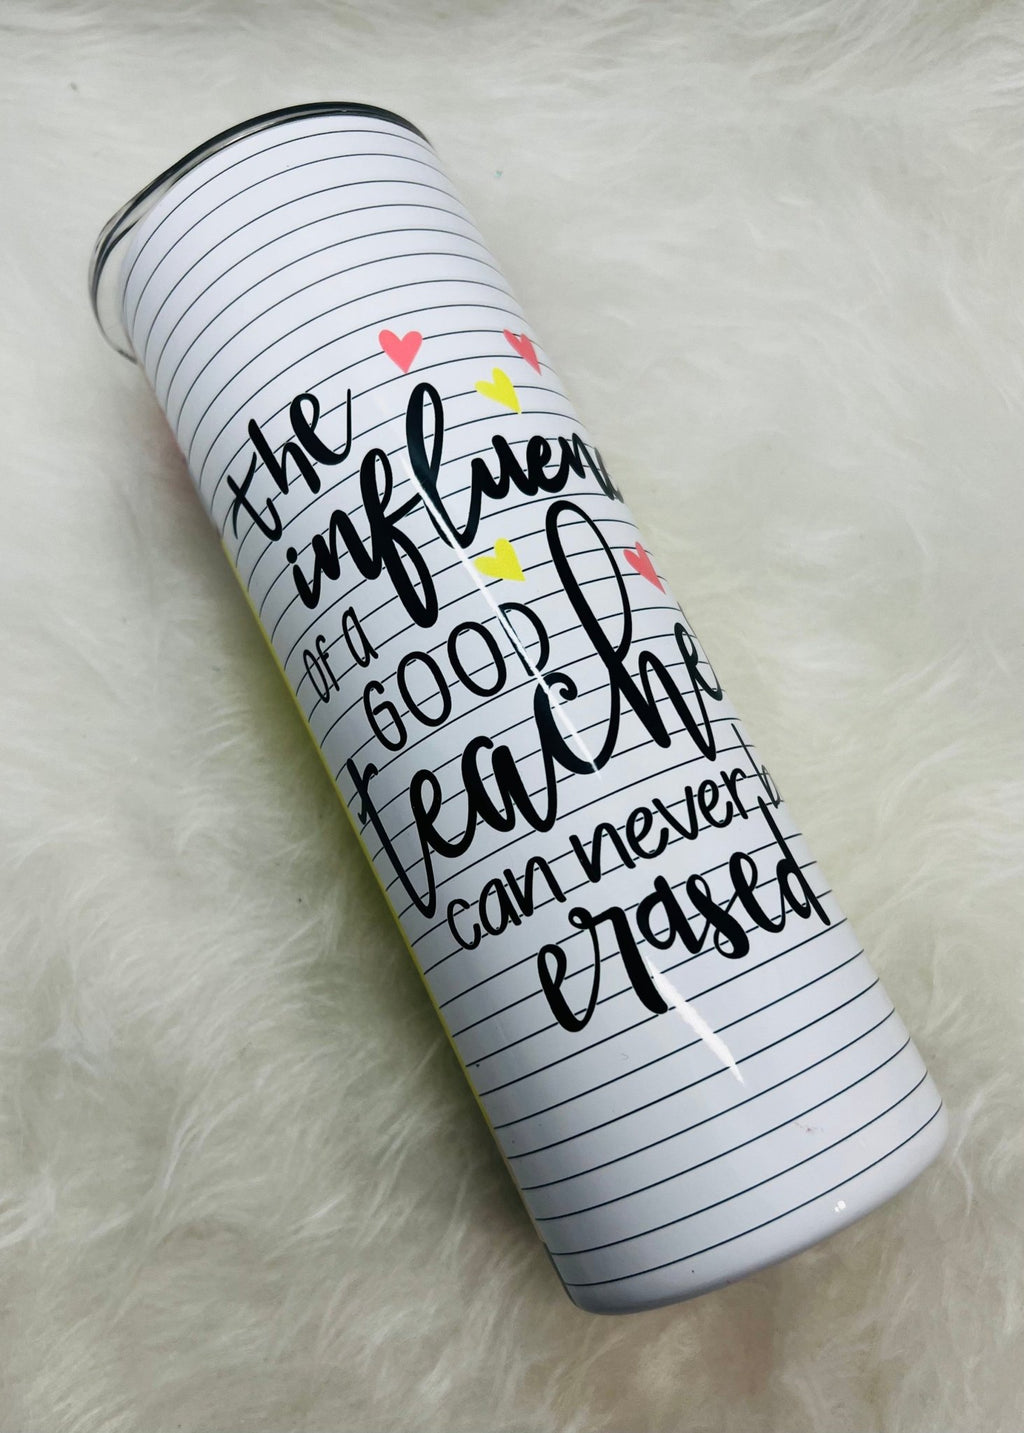 the
influenc
of a
GOOD
teache
can never b
erased